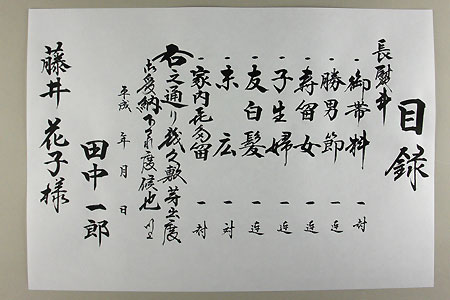 目録
長熨斗
一 御帯料 一対
一 勝男節 一連
一 寿留女 一連
一 子生婦 一連
一 友白髪 一連
一 末広 一対
一 家内喜多留 一対
右之通り幾久敷芽出度
御受納下され度候也
平成 年 月 日
田中 一郎
藤井 花子様